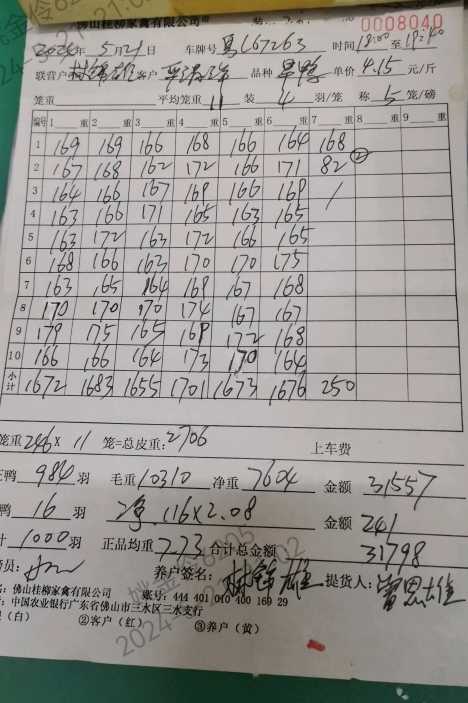 佛山桂柳家禽有限公司
0008040
2024年5月21日 车牌号 粤L67263 时间18:00至19:40
联营户 林锦雄 客户 品种 旱鸭 单价 4.15 元/斤
笼重 平均笼重 11 装 4 羽/笼 称 5 笼/磅
编号 1 重 2 重 3 重 4 重 5 重 6 重 7 重 8 重 9 重
1 169 169 166 168 166 164 168
2 167 168 162 172 166 171 82 ②
3 164 166 167 169 166 169 /
4 163 166 171 165 163 165
5 163 172 163 172 166 165
6 168 166 163 170 170 175
7 163 165 164 169 167 168
8 170 170 170 174 167 167
9 179 175 165 169 172 168
10 166 166 164 173 170 164
小计 1672 1683 1655 1701 1673 1676 250
笼重 246 × 11 笼=总皮重: 2706 上车费
鸭 984 羽 毛重 10310 净重 7604 金额 31557
鸭 16 羽 净 116×2.08 金额 241
计 1000 羽 正品均重 7.73 合计总金额 31798
养户签名: 林锦雄 提货人: 雷恩雄
名: 佛山桂柳家禽有限公司 账号: 444 401 010 400 169 29
: 中国农业银行广东省佛山市三水区三水支行
(白) ②客户(红) ③养户(黄)